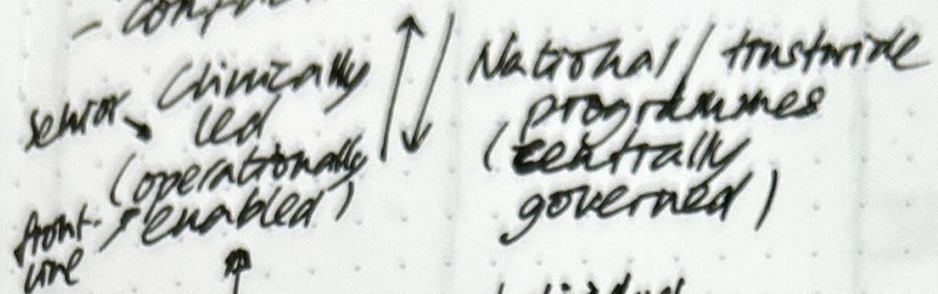 senior Clinically
led
(operationally
enabled)
front-
line
National / trustwide
programmes
(centrally
governed)